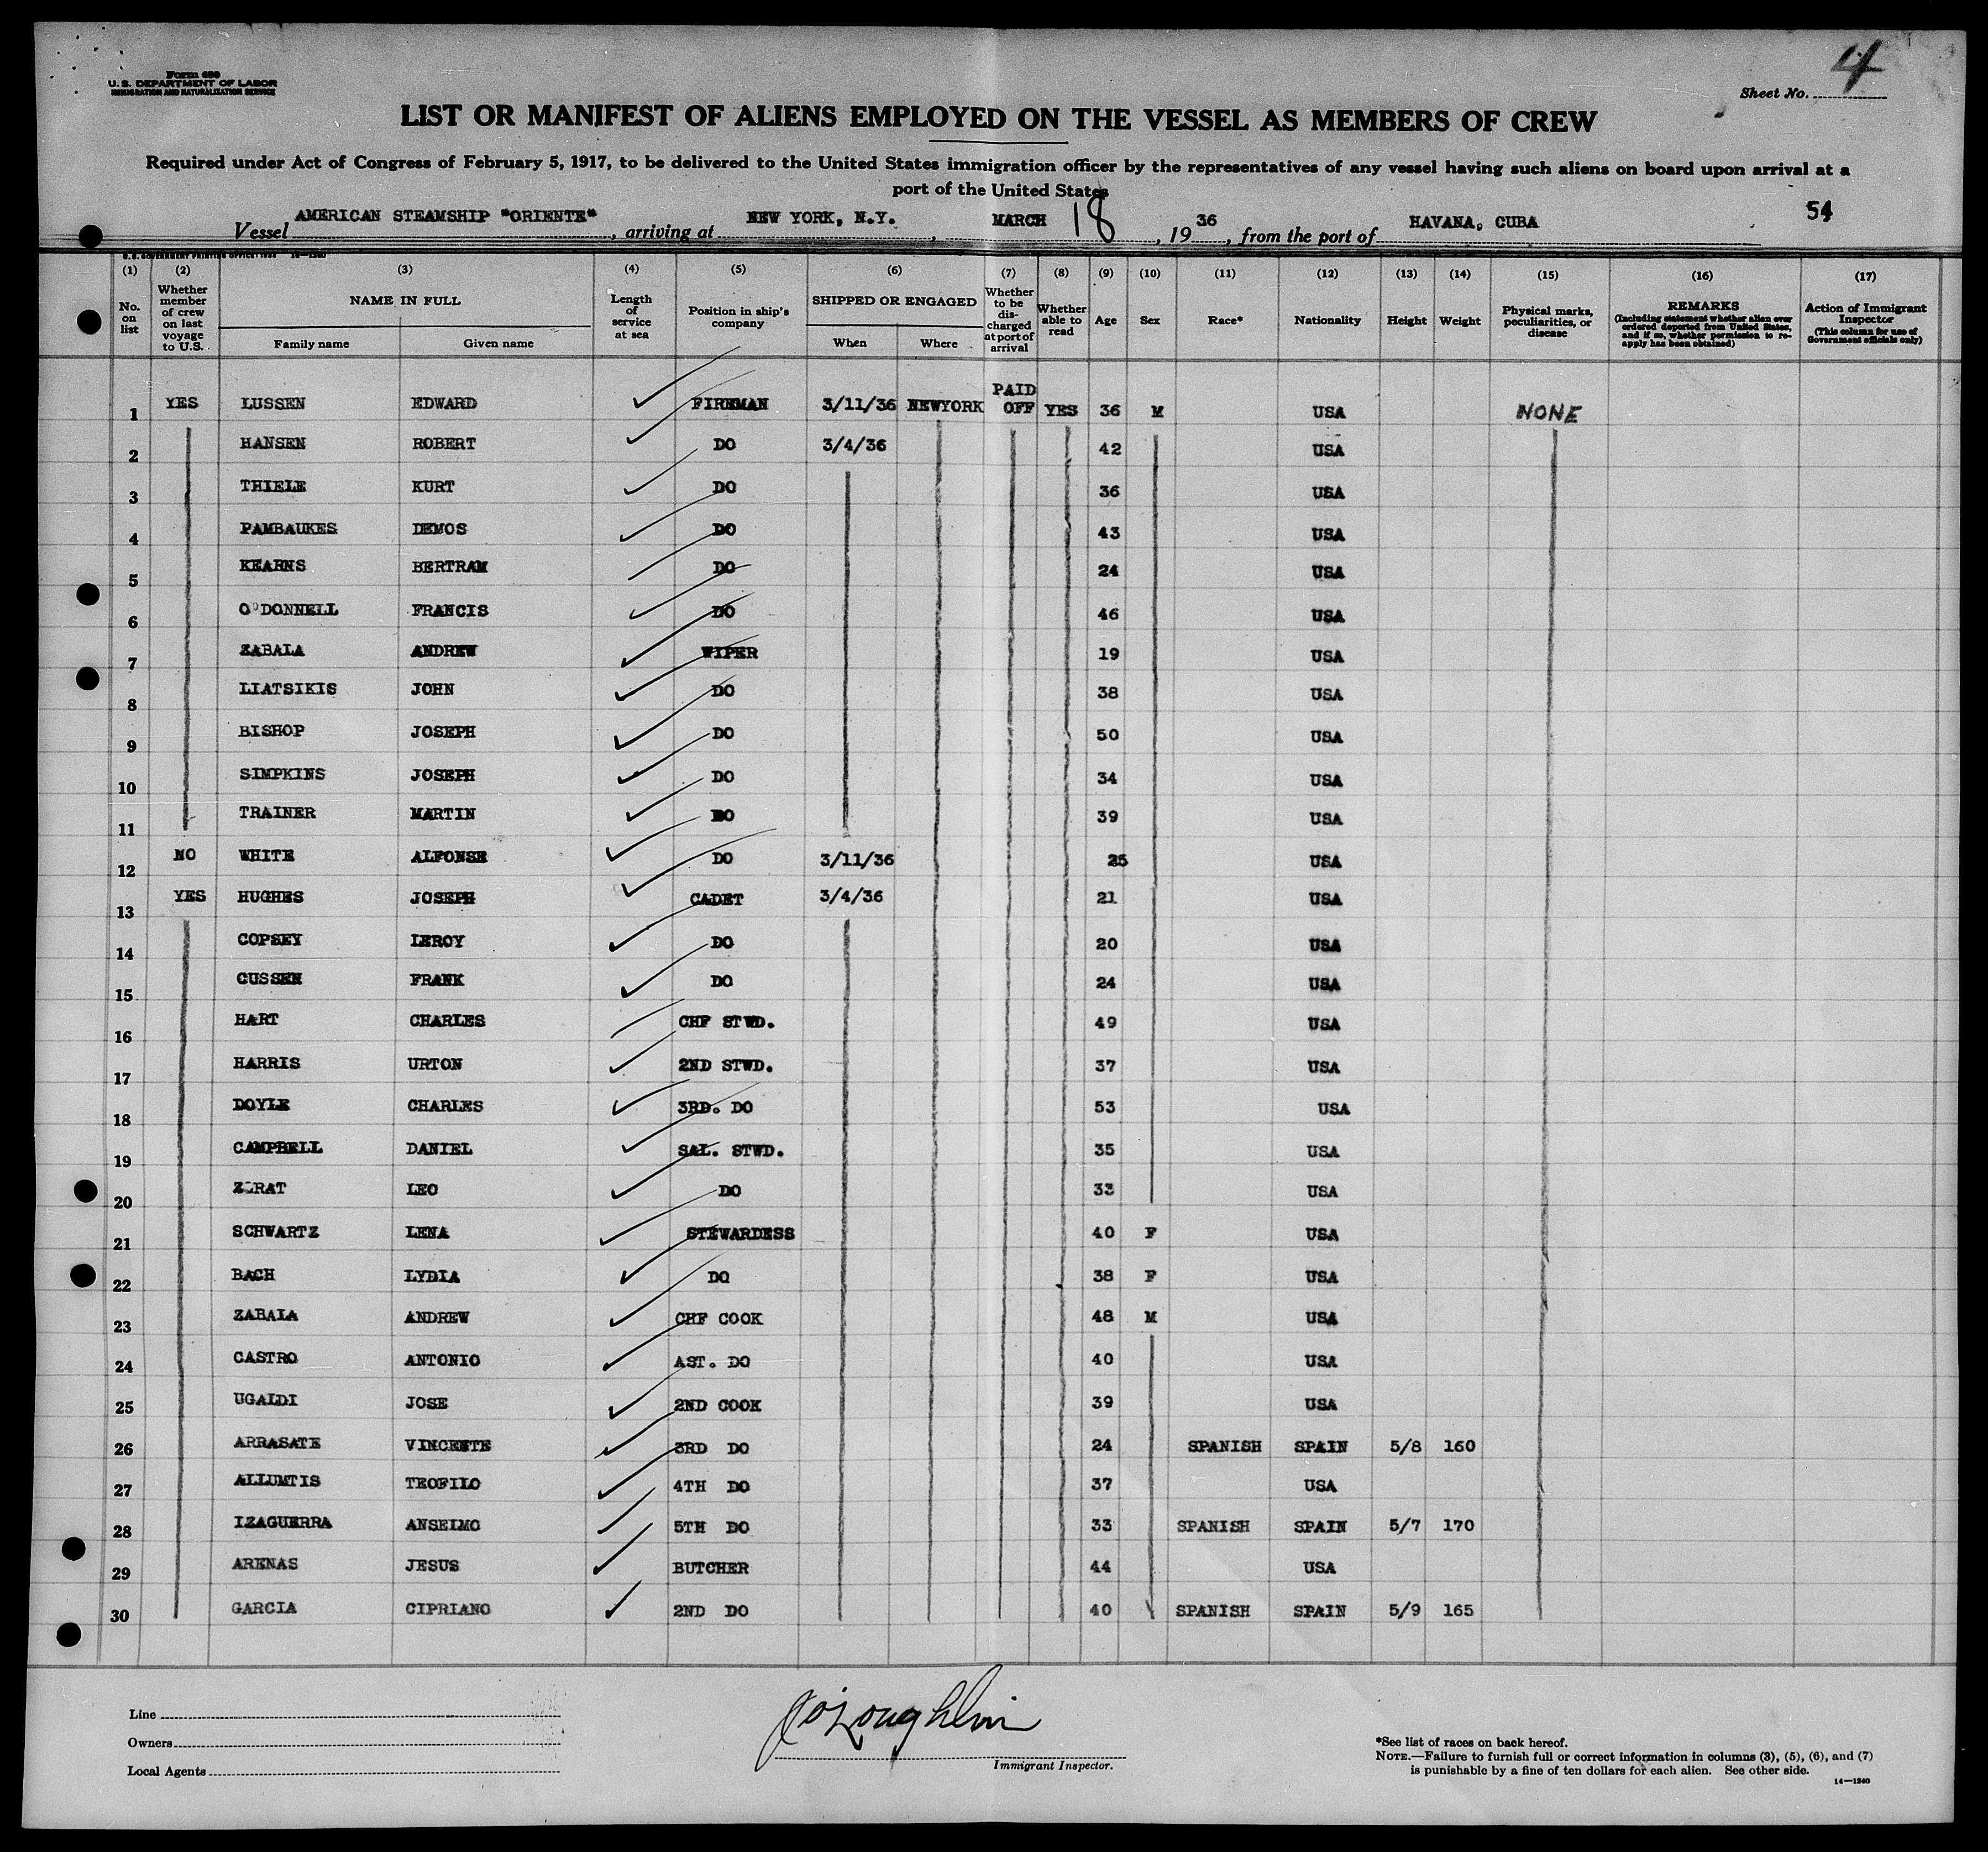 Form 680
U. S. DEPARTMENT OF LABOR
IMMIGRATION AND NATURALIZATION SERVICE
4
Sheet No.
LIST OR MANIFEST OF ALIENS EMPLOYED ON THE VESSEL AS MEMBERS OF CREW
Required under Act of Congress of February 5, 1917, to be delivered to the United States immigration officer by the representatives of any vessel having such aliens on board upon arrival at a
port of the United States
54
Vessel AMERICAN STEAMSHIP "ORIENTE", arriving at NEW YORK, N.Y., MARCH 18, 1936, from the port of HAVANA, CUBA
U. S. GOVERNMENT PRINTING OFFICE: 14-1240
(1) (2) (3) (4) (5) (6) (7) (8) (9) (10) (11) (12) (13) (14) (15) (16) (17)
No. on list
Whether member of crew on last voyage to U.S.
NAME IN FULL
Family name Given name
Length of service at sea
Position in ship's company
SHIPPED OR ENGAGED
When Where
Whether to be discharged at port of arrival
Whether able to read
Age
Sex
Race*
Nationality
Height
Weight
Physical marks, peculiarities, or disease
REMARKS
(Including statement whether alien ever ordered deported from United States, and if so, whether permission to reapply has been obtained)
Action of Immigrant Inspector
(This column for use of Government officials only)
1 YES LUSSEN EDWARD FIREMAN 3/11/36 NEWYORK PAID OFF YES 36 M USA NONE
2 HANSEN ROBERT DO 3/4/36 42 USA
3 THIELE KURT DO 36 USA
4 PAMBAUKES DEMOS DO 43 USA
5 KEARNS BERTRAM DO 24 USA
6 O'DONNELL FRANCIS DO 46 USA
7 ZABALA ANDREW WIPER 19 USA
8 LIATSIKIS JOHN DO 38 USA
9 BISHOP JOSEPH DO 50 USA
10 SIMPKINS JOSEPH DO 34 USA
11 TRAINER MARTIN DO 39 USA
12 NO WHITE ALFONSE DO 3/11/36 25 USA
13 YES HUGHES JOSEPH CADET 3/4/36 21 USA
14 COPSEY LEROY DO 20 USA
15 CUSSEN FRANK DO 24 USA
16 HART CHARLES CHF STWD. 49 USA
17 HARRIS URTON 2ND STWD. 37 USA
18 DOYLE CHARLES 3RD. DO 53 USA
19 CAMPBELL DANIEL SAL. STWD. 35 USA
20 LEO DO 33 USA
21 SCHWARTZ LENA STEWARDESS 40 F USA
22 BACH LYDIA DO 38 F USA
23 ZABALA ANDREW CHF COOK 48 M USA
24 CASTRO ANTONIO AST. DO 40 USA
25 UGALDI JOSE 2ND COOK 39 USA
26 ARRASATE VINCENTE 3RD DO 24 SPANISH SPAIN 5/8 160
27 ALLUMTIS TEOFILO 4TH DO 37 USA
28 IZAGUERRA ANSELMO 5TH DO 33 SPANISH SPAIN 5/7 170
29 ARENAS JESUS BUTCHER 44 USA
30 GARCIA CIPRIANO 2ND DO 40 SPANISH SPAIN 5/9 165
Line
Owners
Local Agents
O'Loughlin
Immigrant Inspector.
*See list of races on back hereof.
NOTE.—Failure to furnish full or correct information in columns (3), (5), (6), and (7)
is punishable by a fine of ten dollars for each alien. See other side.
14—1240